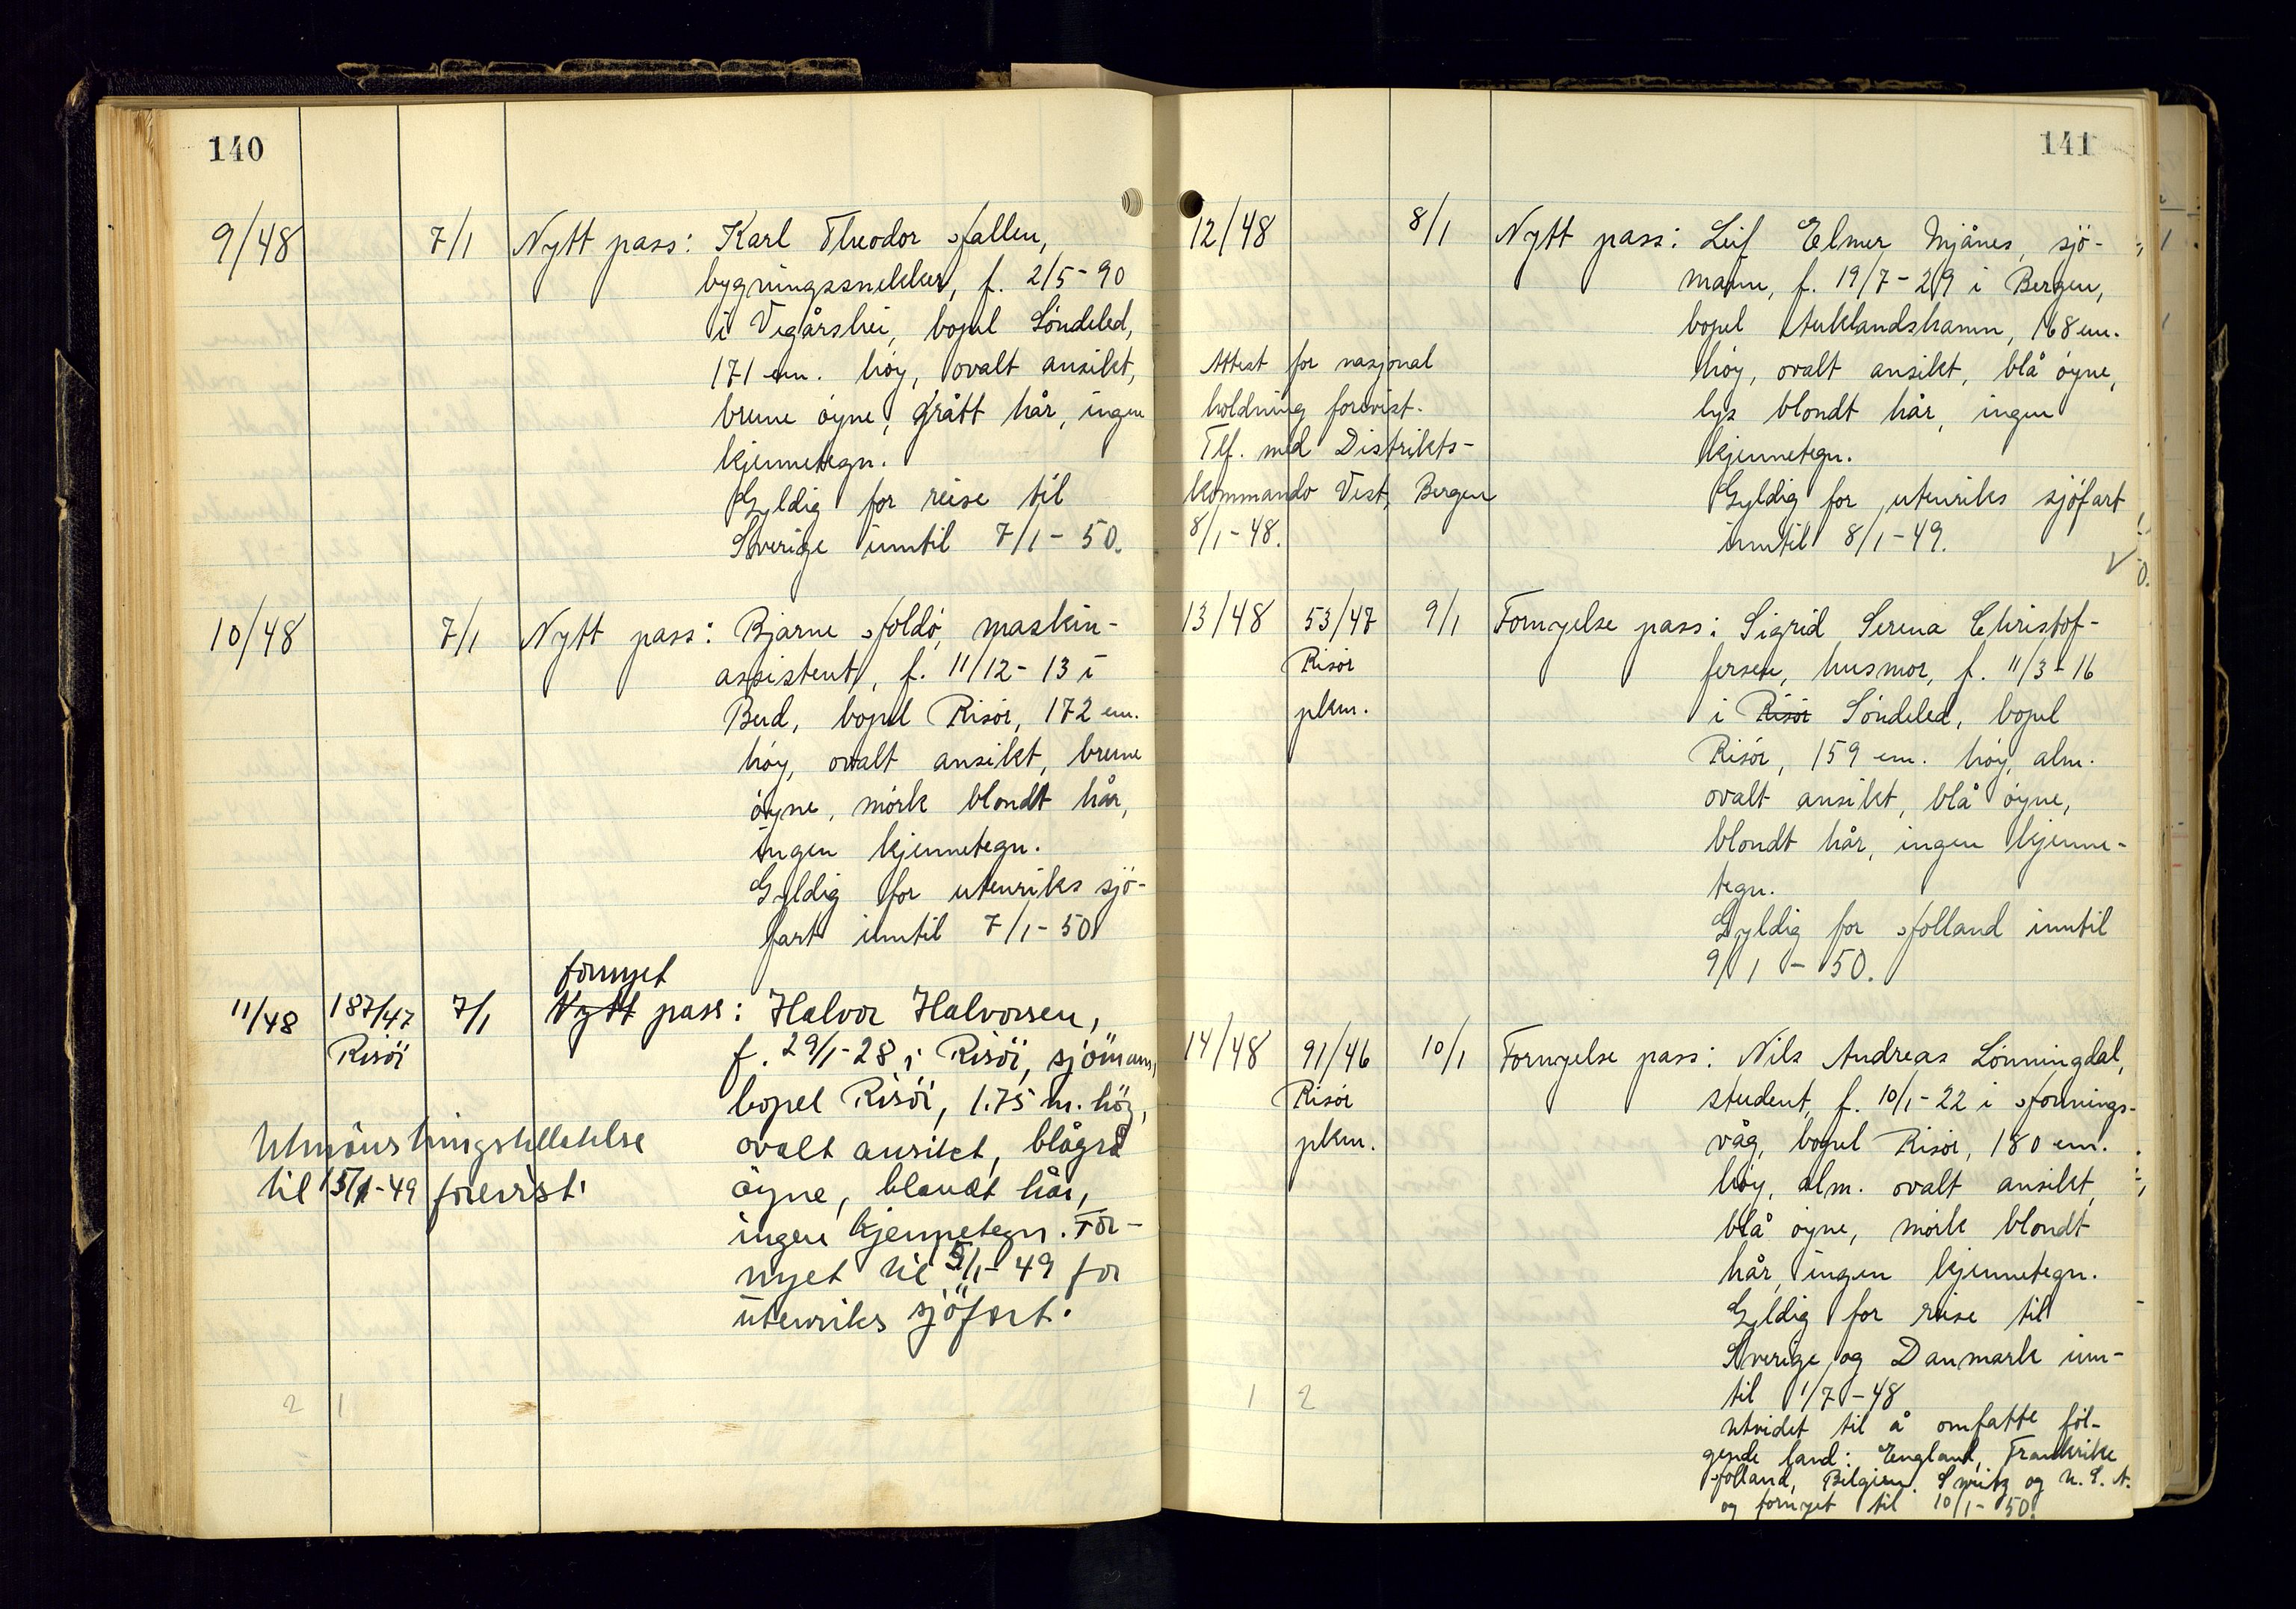 140
9/48 7/1 Nytt pass: Karl Theodor Hallen,
bygningssnekker, f. 2/5-90
i Vegårshei, bopel Söndeled,
171 cm. höy, ovalt ansikt,
brune öyne, grått hår, ingen
kjennetegn.
Gyldig for reise til
Sverige inntil 7/1-50.
10/48 7/1 Nytt pass: Bjarne Holdö, maskin-
assistent, f. 11/12-13 i
Bud, bopel Risör, 172 cm.
höy, ovalt ansikt, brune
öyne, mörk blondt hår,
ingen kjennetegn.
Gyldig for utenriks sjö-
fart inntil 7/1-50
fornyet
11/48 187/47 7/1 Nytt pass: Halvor Halvorsen,
Risör f. 29/1-28 i Risör, sjömann,
bopel Risör, 1.75 m. höy,
Utmönstringstillatelse ovalt ansikt, blågrå
til 15/1-49 forevist. öyne, blondt hår,
ingen kjennetegn. For-
nyet til 5/1-49 for
utenriks sjöfart.
2 1
141
12/48 8/1 Nytt pass: Leif Elmer Mjånes, sjö-
mann, f. 19/7-29 i Bergen,
bopel Auklandshamn, 168 cm.
Attest for nasjonal höy, ovalt ansikt, blå öyne,
holdning forevist. lys blondt hår, ingen
Tlf. med Distrikts- kjennetegn.
kommando Vest, Bergen Gyldig for utenriks sjöfart
8/1-48. inntil 8/1-49.
13/48 53/47 9/1 Fornyelse pass: Sigrid Serena Christof-
Risör fersen, husmor, f. 11/3-16
plkm. i Risör Söndeled, bopel
Risör, 159 cm. höy, alm.
ovalt ansikt, blå öyne,
blondt hår, ingen kjenne-
tegn.
Gyldig for Holland inntil
9/1-50.
14/48 91/46 10/1 Fornyelse pass: Nils Andreas Lönningdal,
Risör student, f. 10/1-22 i Honnings-
plkm. våg, bopel Risör, 180 cm.
höy, alm. ovalt ansikt,
blå öyne, mörk blondt
hår, ingen kjennetegn.
Gyldig for reise til
Sverige og Danmark inn-
til 1/7-48
1 2
utvidet til å omfatte föl-
gende land: England, Frankrike
Holland, Belgien, Sveitz og U.S.A.
og fornyet til 10/1-50.